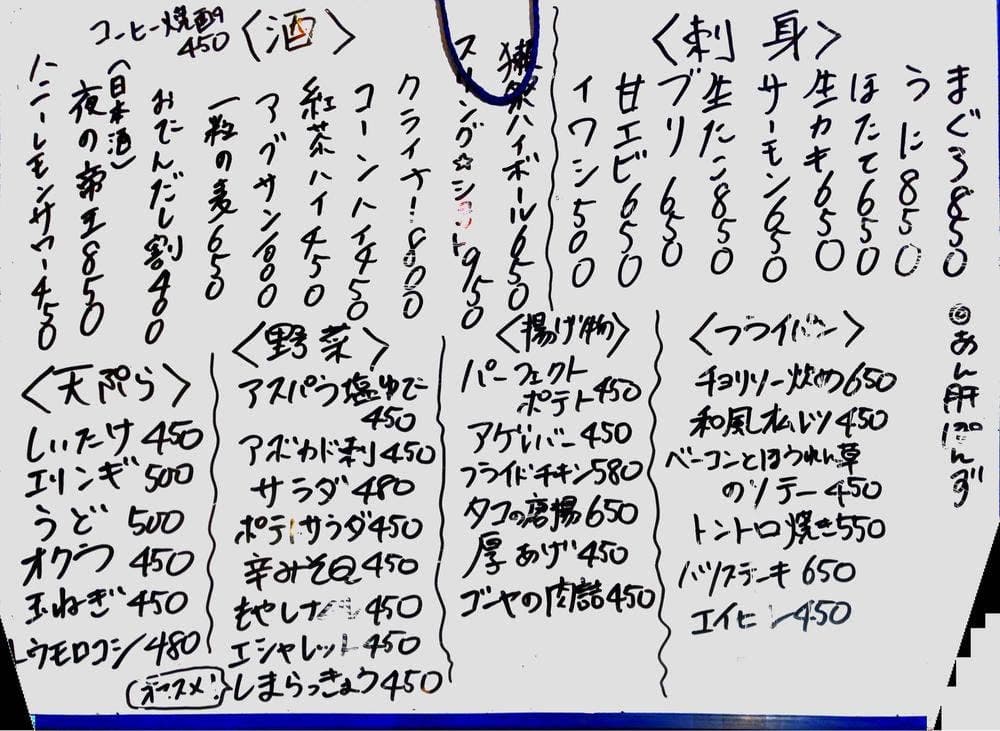 〈刺身〉
まぐろ850
うに850
ほたて650
生カキ650
サーモン650
生たこ850
ブリ650
甘エビ650
イワシ500
◎あん肝ぽんず
〈酒〉
獺祭ハイボール650
950
クライナー800
コーンハイ450
紅茶ハイ450
アグサン600
一粒の麦650
おでんだし割400
(日本酒)
夜の帝王850
ハニーレモンサワー450
コーヒー焼酎
450
〈フライパン〉
チョリソー炒め650
和風オムレツ450
ベーコンとほうれん草
のソテー450
トントロ焼き550
ハツステーキ650
エイヒレ450
〈揚げ物〉
パーフェクト
ポテト450
アゲレバー450
フライドチキン580
タコの唐揚650
厚あげ450
ゴーヤの肉詰450
〈野菜〉
アスパラ塩ゆで
450
アボカド刺450
サラダ480
ポテトサラダ450
辛みそQ450
もやしナムル450
エシャレット450
オススメ！しまらっきょう450
〈天ぷら〉
しいたけ450
エリンギ500
うど500
オクラ450
玉ねぎ450
トウモロコシ480